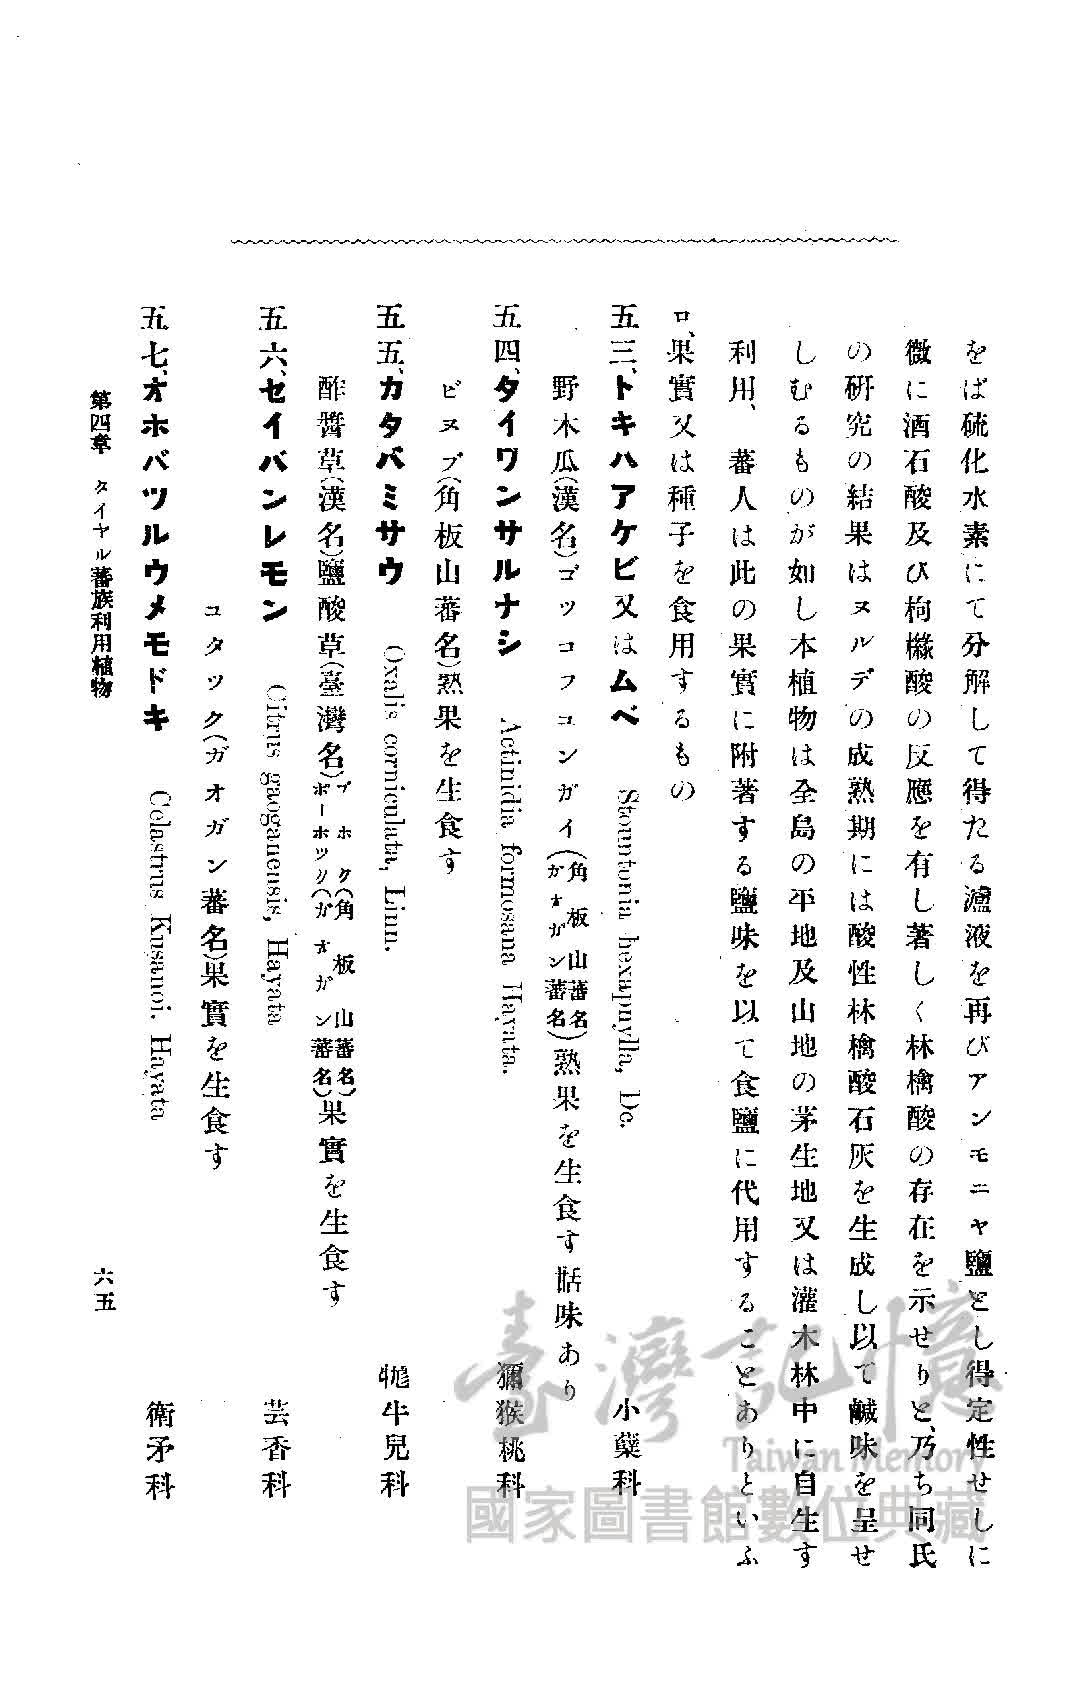 をば硫化水素にて分解して得たる濾液を再びアンモニヤ鹽とし得定性せしに
微に酒石酸及び枸櫞酸の反應を有し著しく林檎酸の存在を示せりと、乃ち同氏
の研究の結果はヌルデの成熟期には酸性林檎酸石灰を生成し以て鹹味を呈せ
しむるものが如し本植物は全島の平地及山地の茅生地又は灌木林中に自生す
利用、蕃人は此の果實に附著する鹽味を以て食鹽に代用することありといふ
ロ、果實又は種子を食用するもの
五三、トキハアケビ又はムベ Stountonia hexapnylla, Dc. 小蘗科
野木瓜(漢名)ゴツコフコンガイ(角板山蕃名)(ガオガン蕃名)熟果を生食す甛味あり
五四、タイワンサルナシ Actinidia formosana Hayata. 獼猴桃科
ビヌブ(角板山蕃名)熟果を生食す
五五、カタバミサウ Oxalis corniculata, Linn. 牻牛兒科
酢醬草(漢名)鹽酸草(臺灣名)ブホク(角板山蕃名)ボーホツク(ガオガン蕃名)果實を生食す
五六、セイバンレモン Citrus gaoganensis, Hayata 芸香科
ユタック(ガオガン蕃名)果實を生食す
五七、オホバツルウメモドキ Celastrus Kusanoi. Hayata 衛矛科
第四章 タイヤル蕃族利用植物 六五
臺灣記憶
Taiwan Memory
國家圖書館數位典藏